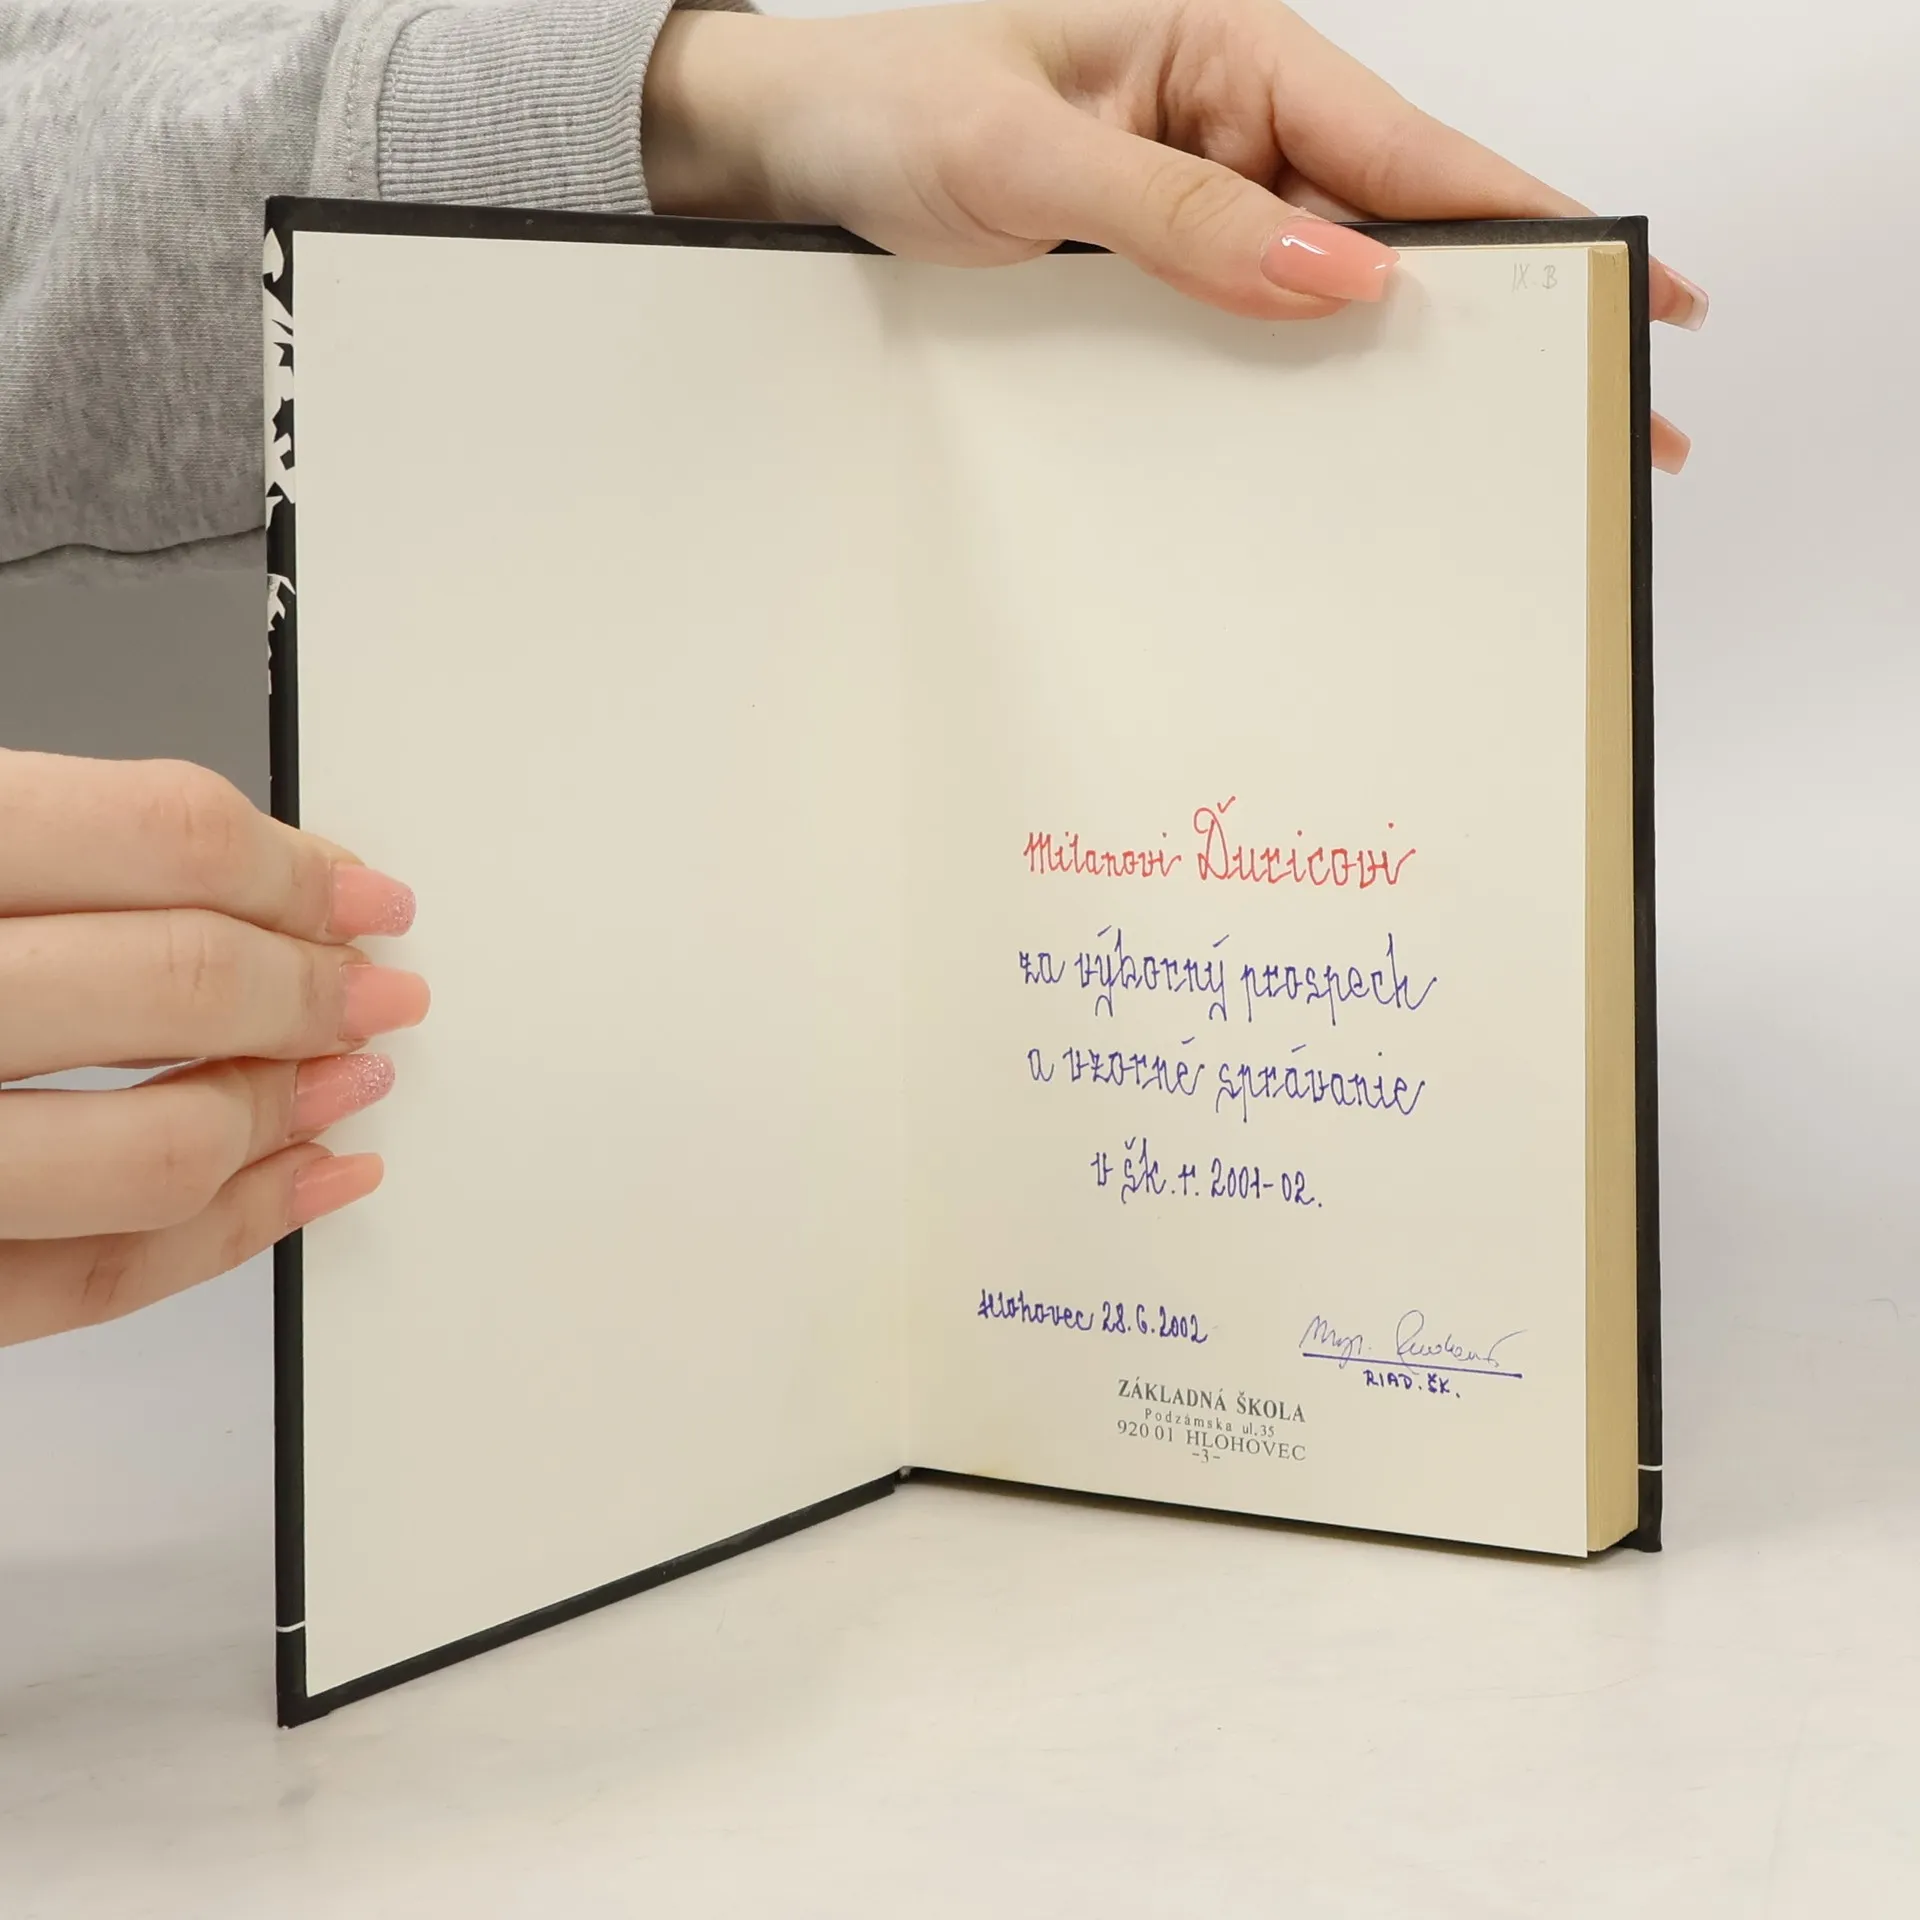 IX. B
Milanovi Ďuricovi
za výborný prospech
a vzorné správanie
v šk. r. 2001-02.
Hlohovec 28.6.2002
Mgr.
RIAD. ŠK.
ZÁKLADNÁ ŠKOLA
Podzámska ul.35
920 01 HLOHOVEC
-3-